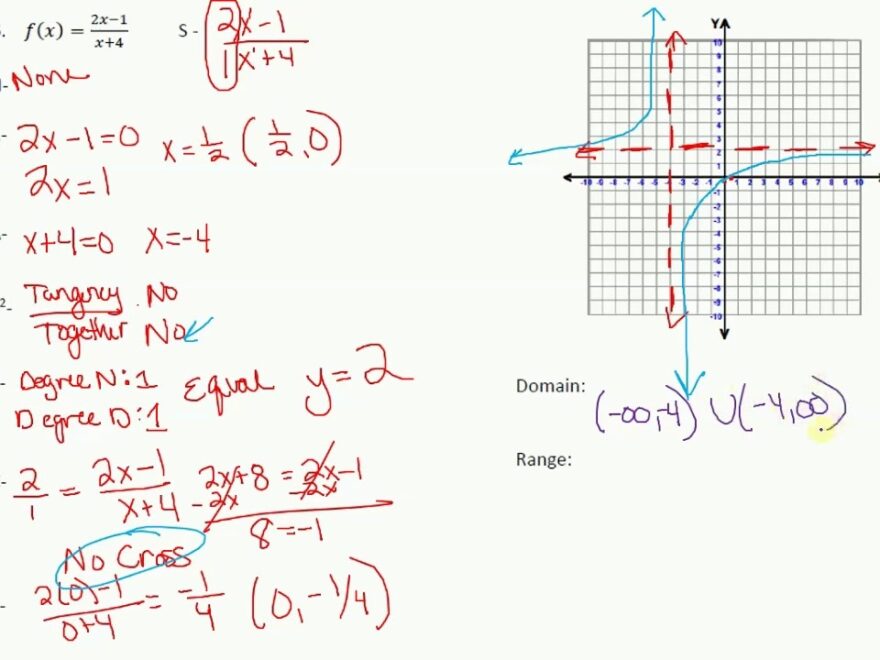 f(x) = 2x−1/x+4
S - 2x-1/1x+4
None
2x-1=0 x=1/2 (1/2,0)
2x=1
x+4=0 x=-4
Tangency No
Together No
Degree N:1 Equal y=2
Degree D:1
2/1 = 2x-1/x+4 2x+8 = 2x-1
-2x -2x
8=-1
No Cross
2(0)-1/0+4 = -1/4 (0,-1/4)
Y
10
9
8
7
6
5
4
3
2
1
-10 -9 -8 -7 -6 -5 -4 -3 -2 -1 1 2 3 4 5 6 7 8 9 10
-1
-2
-3
-4
-5
-6
-7
-8
-9
-10
Domain: (-∞,-4) ∪ (-4,∞)
Range: